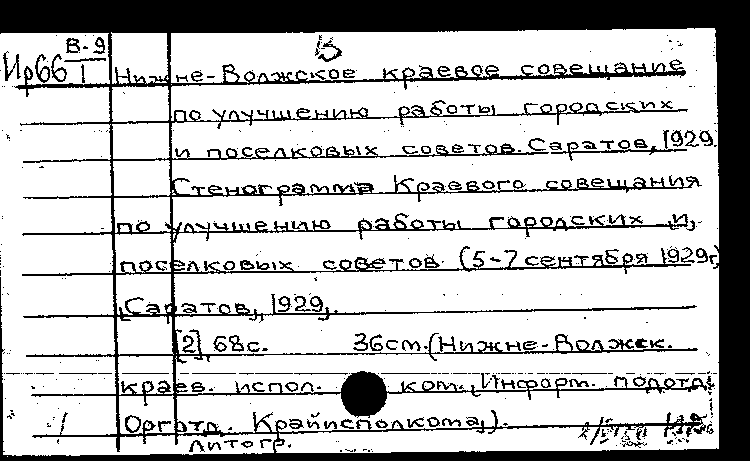 В-9 В
Ир66 1 Нижне-Волжское краевое совещание
по улучшению работы городских
и поселковых советов. Саратов, 1929
Стенограмма Краевого совещания
по улучшению работы городских и
поселковых советов (5-7 сентября 1929г.)
[Саратов], [1929].
[2], 68с. 36см. (Нижне-Волжск.
краев. испол. ком. [Информ. подотд.
Орготд. Крайисполкома]).
Литогр.